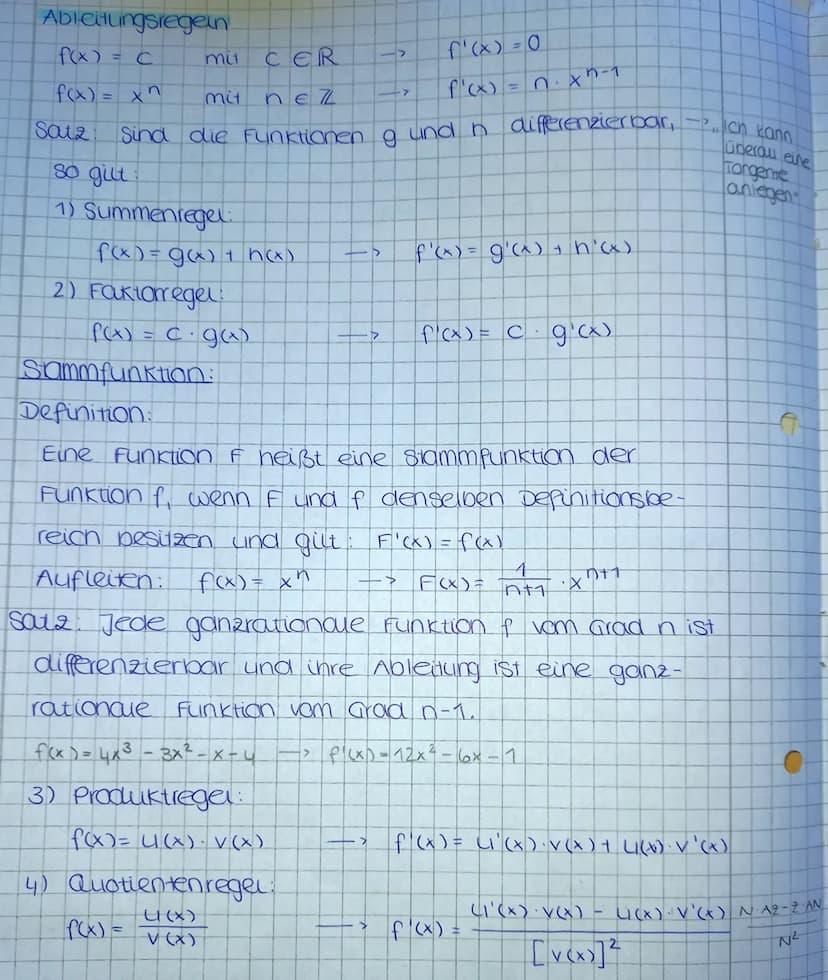 Ableitungsregeln
f(x) = c mit c ∈ ℝ → f'(x) = 0
f(x) = xⁿ mit n ∈ ℤ → f'(x) = n · xⁿ⁻¹
Satz: Sind die Funktionen g und h differenzierbar, → „Ich kann
überall eine
Tangente
anlegen.
so gilt:
1) Summenregel:
f(x) = g(x) + h(x) → f'(x) = g'(x) + h'(x)
2) Faktorregel:
f(x) = c · g(x) → f'(x) = c · g'(x)
Stammfunktion:
Definition:
Eine Funktion F heißt eine Stammfunktion der
Funktion f, wenn F und f denselben Definitionsbe-
reich besitzen und gilt: F'(x) = f(x)
Aufleiten: f(x) = xⁿ → F(x) = 1/(n+1) · xⁿ⁺¹
Satz: Jede ganzrationale Funktion f vom Grad n ist
differenzierbar und ihre Ableitung ist eine ganz-
rationale Funktion vom Grad n-1.
f(x) = 4x³ - 3x² - x - 4 → f'(x) = 12x² - 6x - 1
3) Produktregel:
f(x) = u(x) · v(x) → f'(x) = u'(x) · v(x) + u(x) · v'(x)
4) Quotientenregel:
f(x) = u(x)/v(x) → f'(x) = (u'(x) · v(x) - u(x) · v'(x))/[v(x)]² (N · AZ - Z · AN)/N²